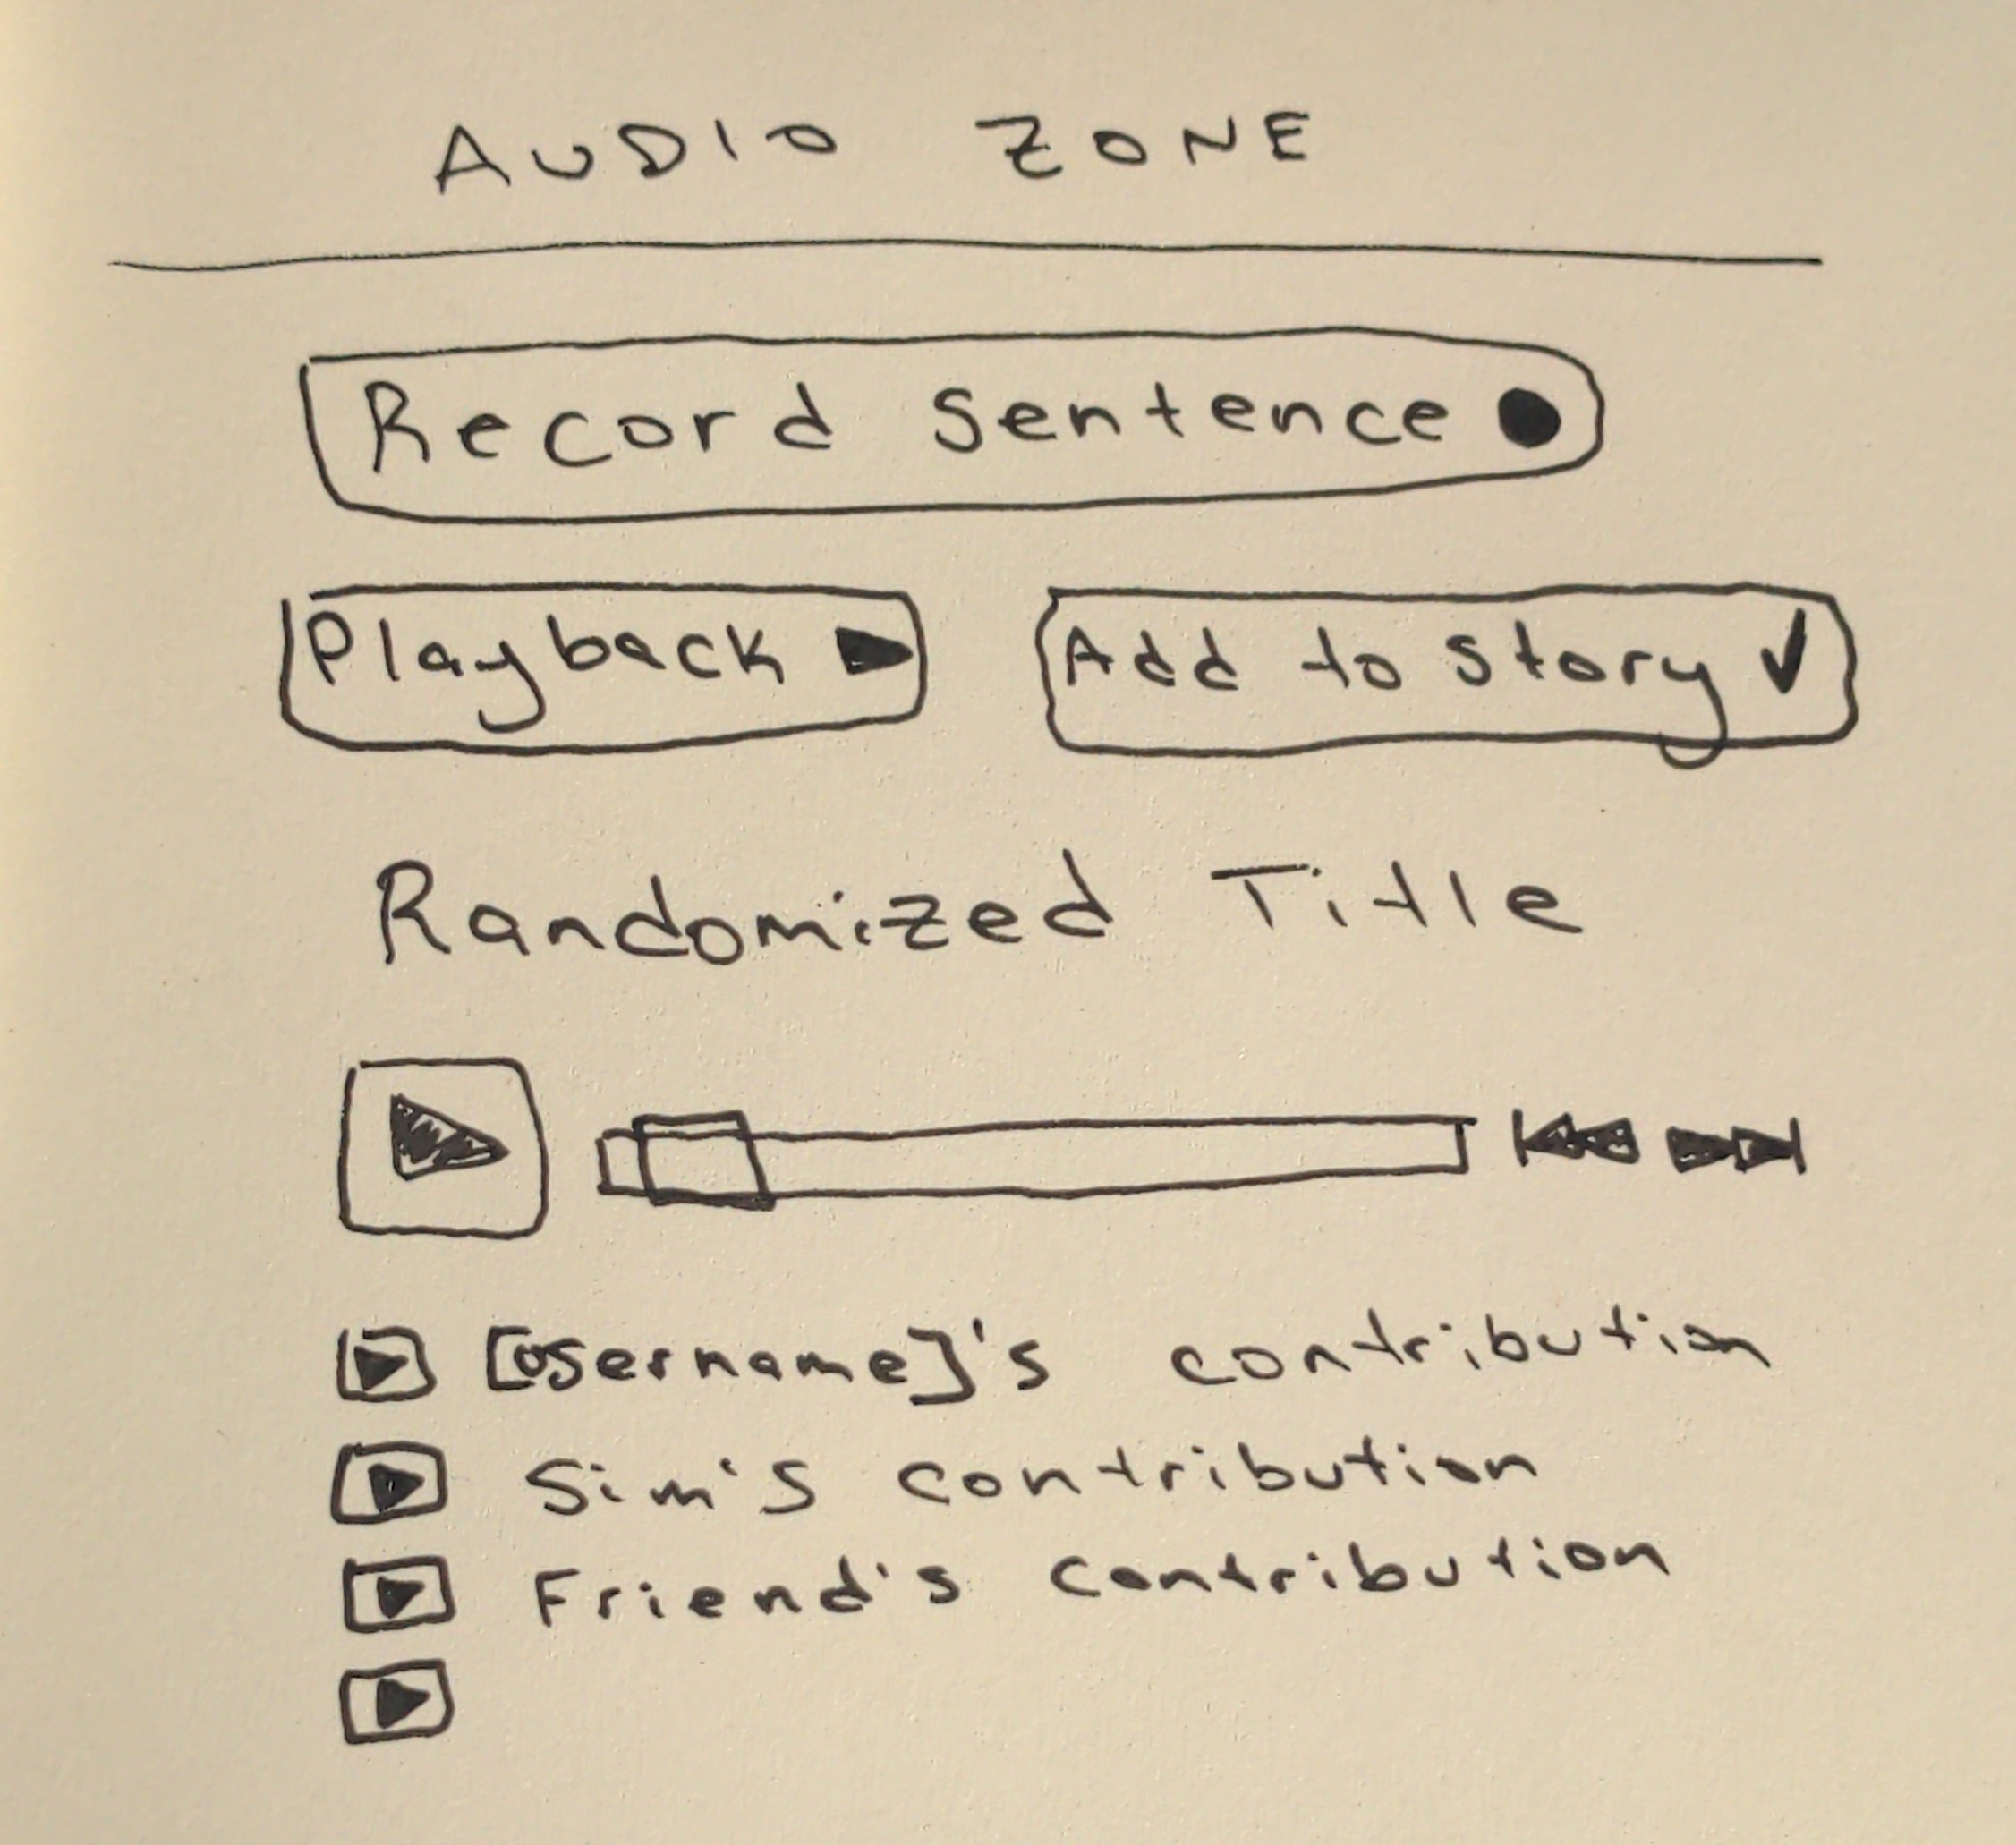 AUDIO ZONE
Record Sentence
Playback
Add to story
Randomized Title
[Username]'s contribution
Sim's contribution
Friend's contribution